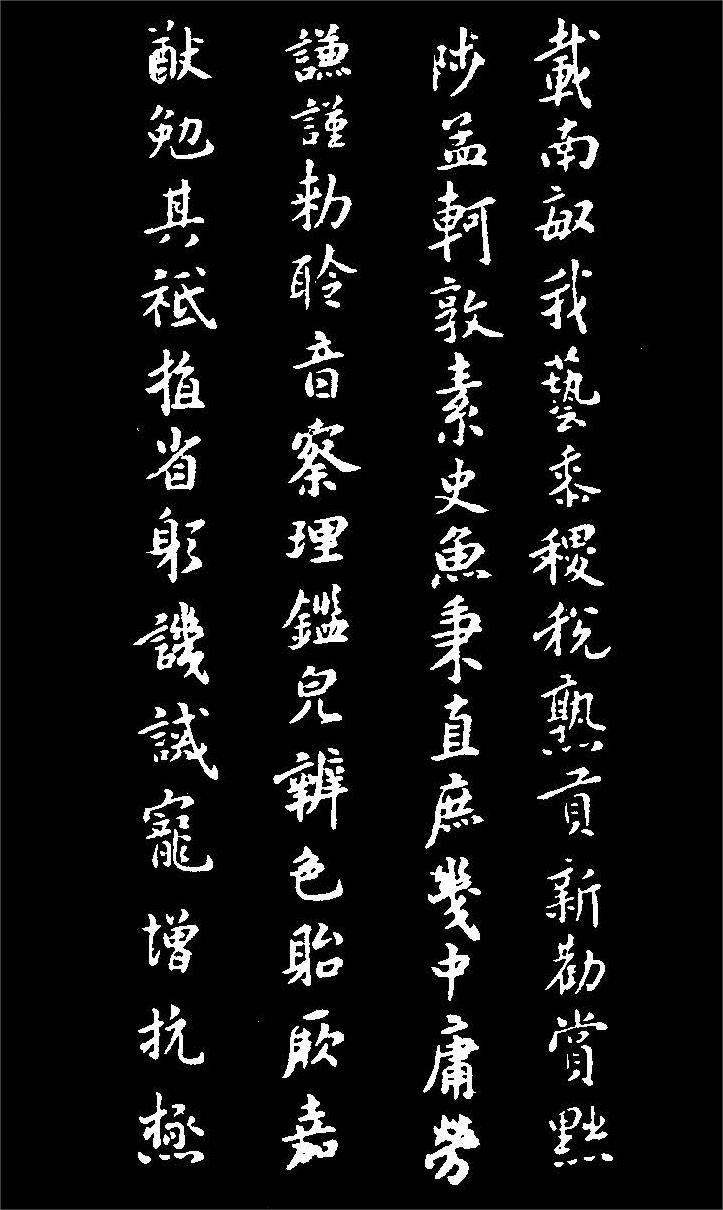 載南畝我藝黍稷稅熟貢新勸賞黜
陟孟軻敦素史魚秉直庶幾中庸勞
謙謹勅聆音察理鑑皃辨色貽厥嘉
猷勉其祗植省躬譏誡寵增抗極